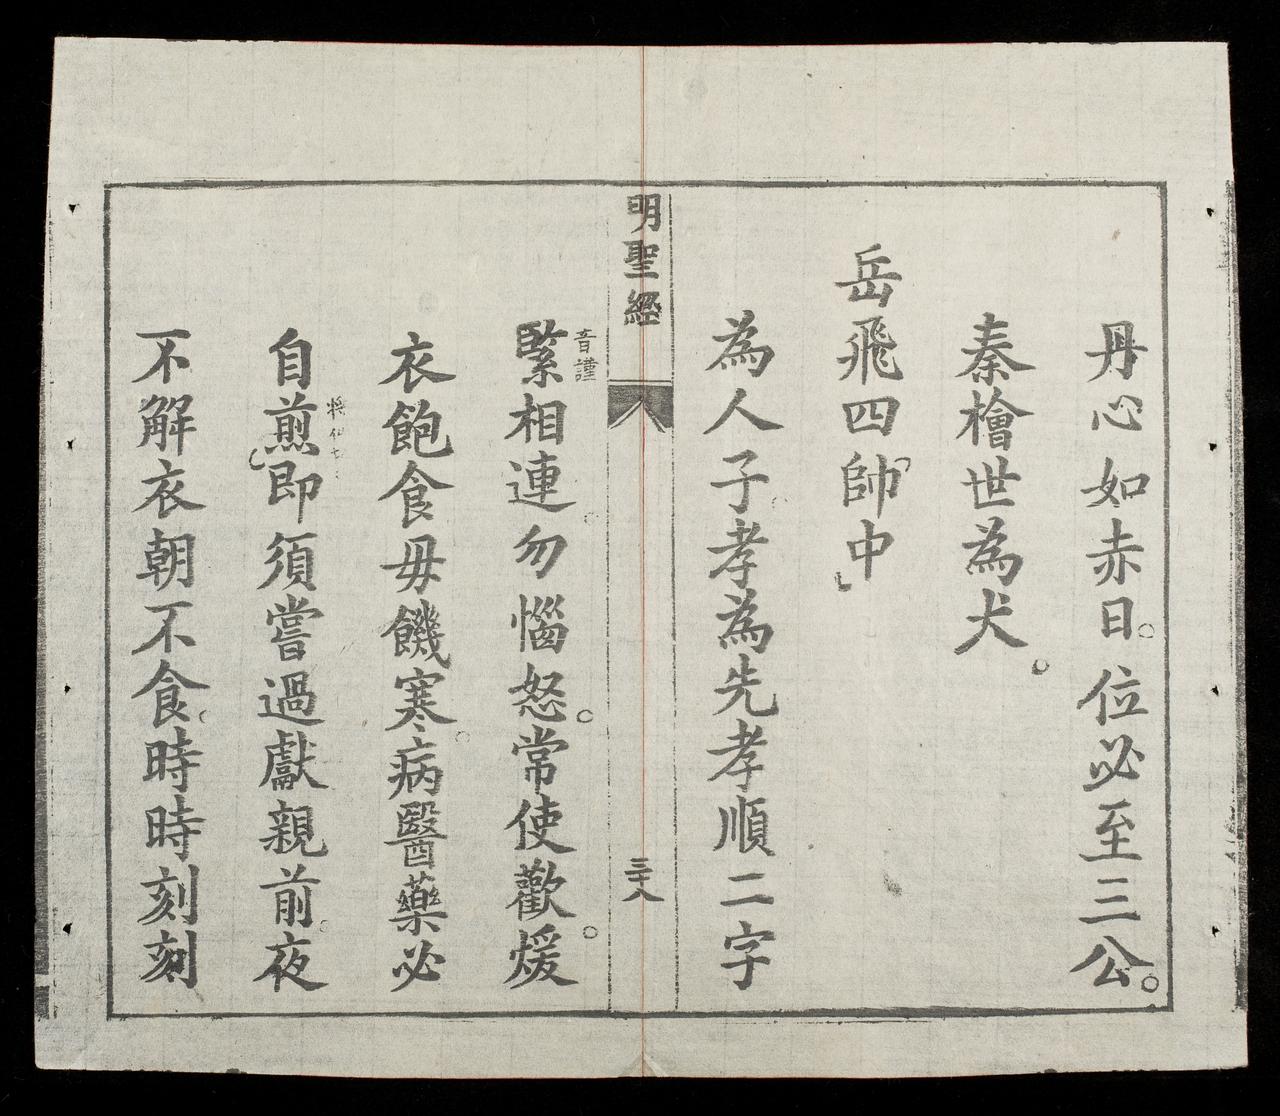 丹心如赤日。位必至三公。
秦檜世為犬。
岳飛四帥中
為人子孝為先孝順二字
明聖經
三十八
音謹
緊相連。勿惱怒。常使歡。煖
衣飽食毋饑寒。病醫藥必
自煎即須嘗過獻親前。夜
不解衣朝不食。時時刻刻